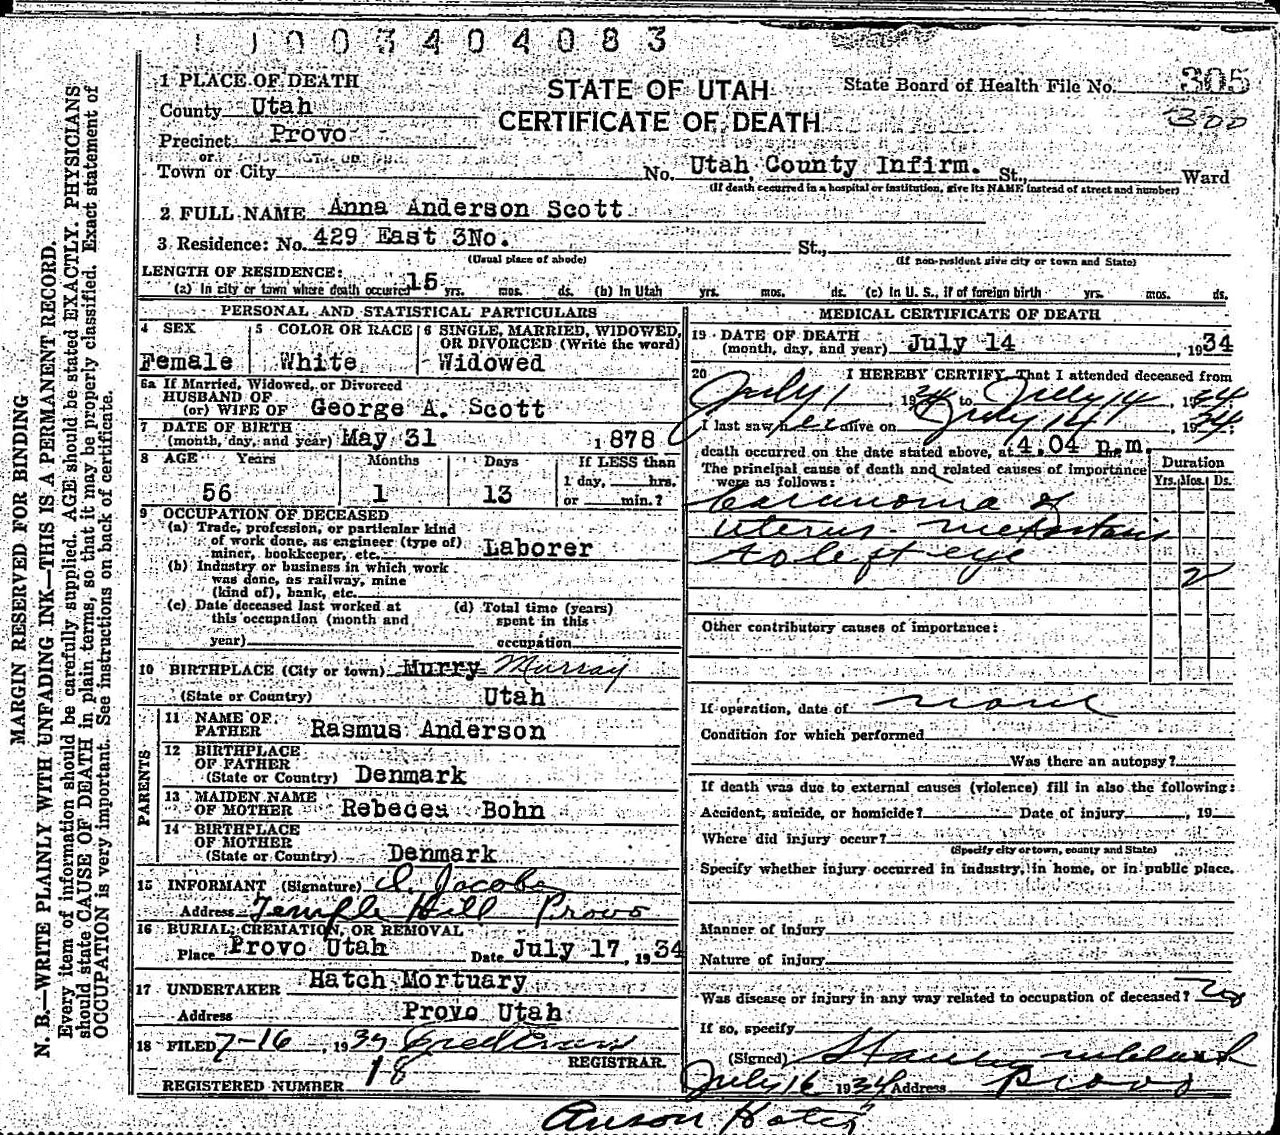 1 1003404083
1 PLACE OF DEATH
County Utah
Precinct Provo
or
Town or City
STATE OF UTAH
CERTIFICATE OF DEATH
State Board of Health File No. 305
300
No. Utah County Infirm. St., Ward
(If death occurred in a hospital or institution, give its NAME instead of street and number)
2 FULL NAME Anna Anderson Scott
3 Residence: No. 429 East 3No. St.,
(Usual place of abode) (If non-resident give city or town and State)
LENGTH OF RESIDENCE:
(a) In city or town where death occurred 15 yrs. mos. ds. (b) In Utah yrs. mos. ds. (c) in U. S., if of foreign birth yrs. mos. ds.
PERSONAL AND STATISTICAL PARTICULARS
4 SEX
Female
5 COLOR OR RACE
White
6 SINGLE, MARRIED, WIDOWED,
OR DIVORCED (Write the word)
Widowed
6a If Married, Widowed, or Divorced
HUSBAND OF
(or) WIFE OF George A. Scott
7 DATE OF BIRTH
(month, day, and year) May 31 1878
8 AGE Years Months Days If LESS than
1 day, hrs.
56 1 13 or min.?
9 OCCUPATION OF DECEASED
(a) Trade, profession, or particular kind
of work done, as engineer (type of)
miner, bookkeeper, etc. Laborer
(b) Industry or business in which work
was done, as railway, mine
(kind of), bank, etc.
(c) Date deceased last worked at
this occupation (month and
year)
(d) Total time (years)
spent in this
occupation
10 BIRTHPLACE (City or town) Murry Murray
(State or Country) Utah
PARENTS
11 NAME OF
FATHER Rasmus Anderson
12 BIRTHPLACE
OF FATHER
(State or Country) Denmark
13 MAIDEN NAME
OF MOTHER Rebecea Bohn
14 BIRTHPLACE
OF MOTHER
(State or Country) Denmark
15 INFORMANT (Signature) D. Jacobs
Address Temple Hill Provo
16 BURIAL, CREMATION, OR REMOVAL
Place Provo Utah Date July 17, 1934
17 UNDERTAKER Hatch Mortuary
Address Provo Utah
18 FILED 7-16, 1934
REGISTRAR.
REGISTERED NUMBER 18
MEDICAL CERTIFICATE OF DEATH
19 DATE OF DEATH
(month, day, and year) July 14, 1934
20 I HEREBY CERTIFY, That I attended deceased from
July 1 1934 to July 14, 1934
I last saw her alive on July 14, 1934
death occurred on the date stated above, at 4.04 p.m.
The principal cause of death and related causes of importance
were as follows:
Duration
Yrs. Mos. Ds.
Carcinoma of
uterus - metastasis
to left eye
2
Other contributory causes of importance:
If operation, date of none
Condition for which performed
Was there an autopsy?
If death was due to external causes (violence) fill in also the following:
Accident, suicide, or homicide? Date of injury, 19
Where did injury occur?
(Specify city or town, county and State)
Specify whether injury occurred in industry, in home, or in public place.
Manner of Injury
Nature of injury
Was disease or injury in any way related to occupation of deceased? no
If so, specify
(Signed) Stanley
July 16 1934 Address Provo
Anson Hatch
MARGIN RESERVED FOR BINDING
N. B.—WRITE PLAINLY WITH UNFADING INK—THIS IS A PERMANENT RECORD.
Every item of information should be carefully supplied. AGE should be stated EXACTLY. PHYSICIANS
should state CAUSE OF DEATH in plain terms, so that it may be properly classified. Exact statement of
OCCUPATION is very important. See instructions on back of certificate.